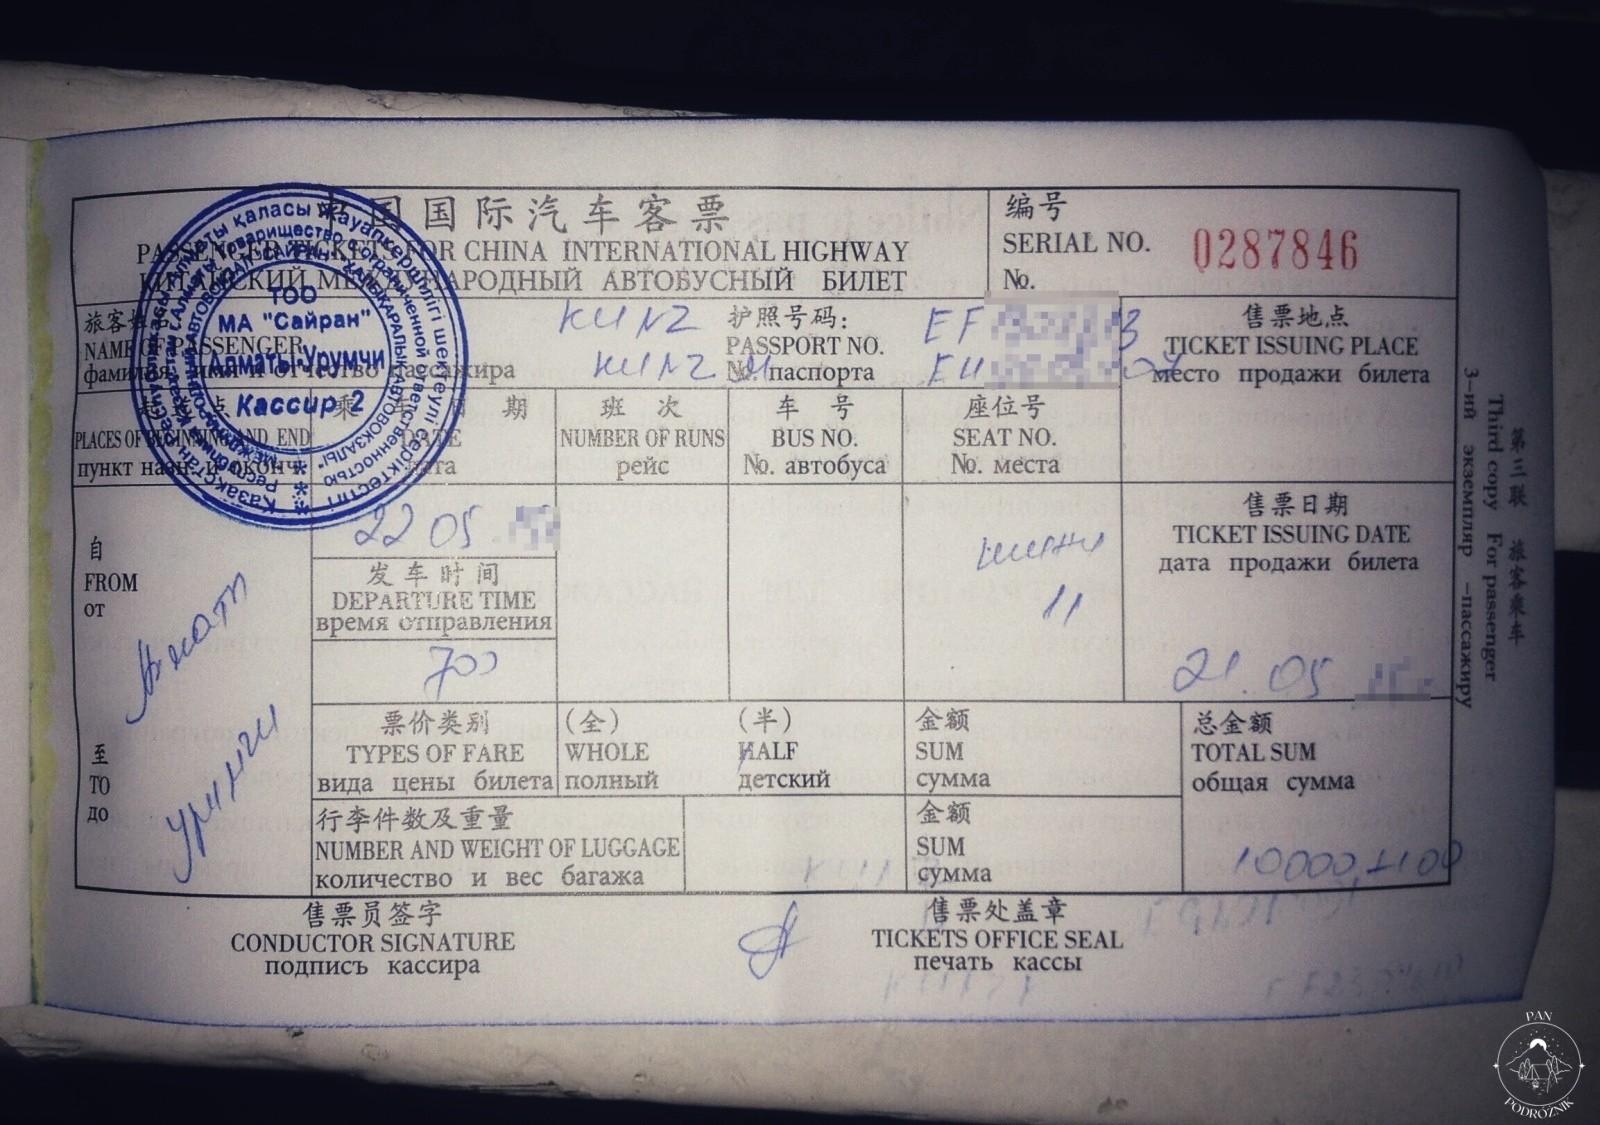 中国国际汽车客票
PASSENGER TICKETS FOR CHINA INTERNATIONAL HIGHWAY
КИТАЙСКИЙ МЕЖДУНАРОДНЫЙ АВТОБУСНЫЙ БИЛЕТ
编号
SERIAL NO.
No.
0287846
旅客姓名
NAME OF PASSENGER
фамилия, имя и отчество пассажира
护照号码:
PASSPORT NO.
No. паспорта
EF
售票地点
TICKET ISSUING PLACE
место продажи билета
ТОО
МА "Сайран"
Алматы-Урумчи
Кассир 2
PLACES OF BEGINNING AND END
пункт назн. и оконч.
乘车日期
DATE
дата
班次
NUMBER OF RUNS
рейс
车号
BUS NO.
No. автобуса
座位号
SEAT NO.
No. места
自
FROM
от
22 05
发车时间
DEPARTURE TIME
время отправления
700
11
售票日期
TICKET ISSUING DATE
дата продажи билета
21.05
至
TO
до
Урумчи
票价类别
TYPES OF FARE
вида цены билета
(全)
WHOLE
полный
(半)
HALF
детский
金额
SUM
сумма
总金额
TOTAL SUM
общая сумма
行李件数及重量
NUMBER AND WEIGHT OF LUGGAGE
количество и вес багажа
金额
SUM
сумма
10000+100
售票员签字
CONDUCTOR SIGNATURE
подписъ кассира
售票处盖章
TICKETS OFFICE SEAL
печать кассы
第三联 旅客乘车
Third copy For passenger
3-ий экземпляр -пассажиру
PAN
PODRÓŻNIK